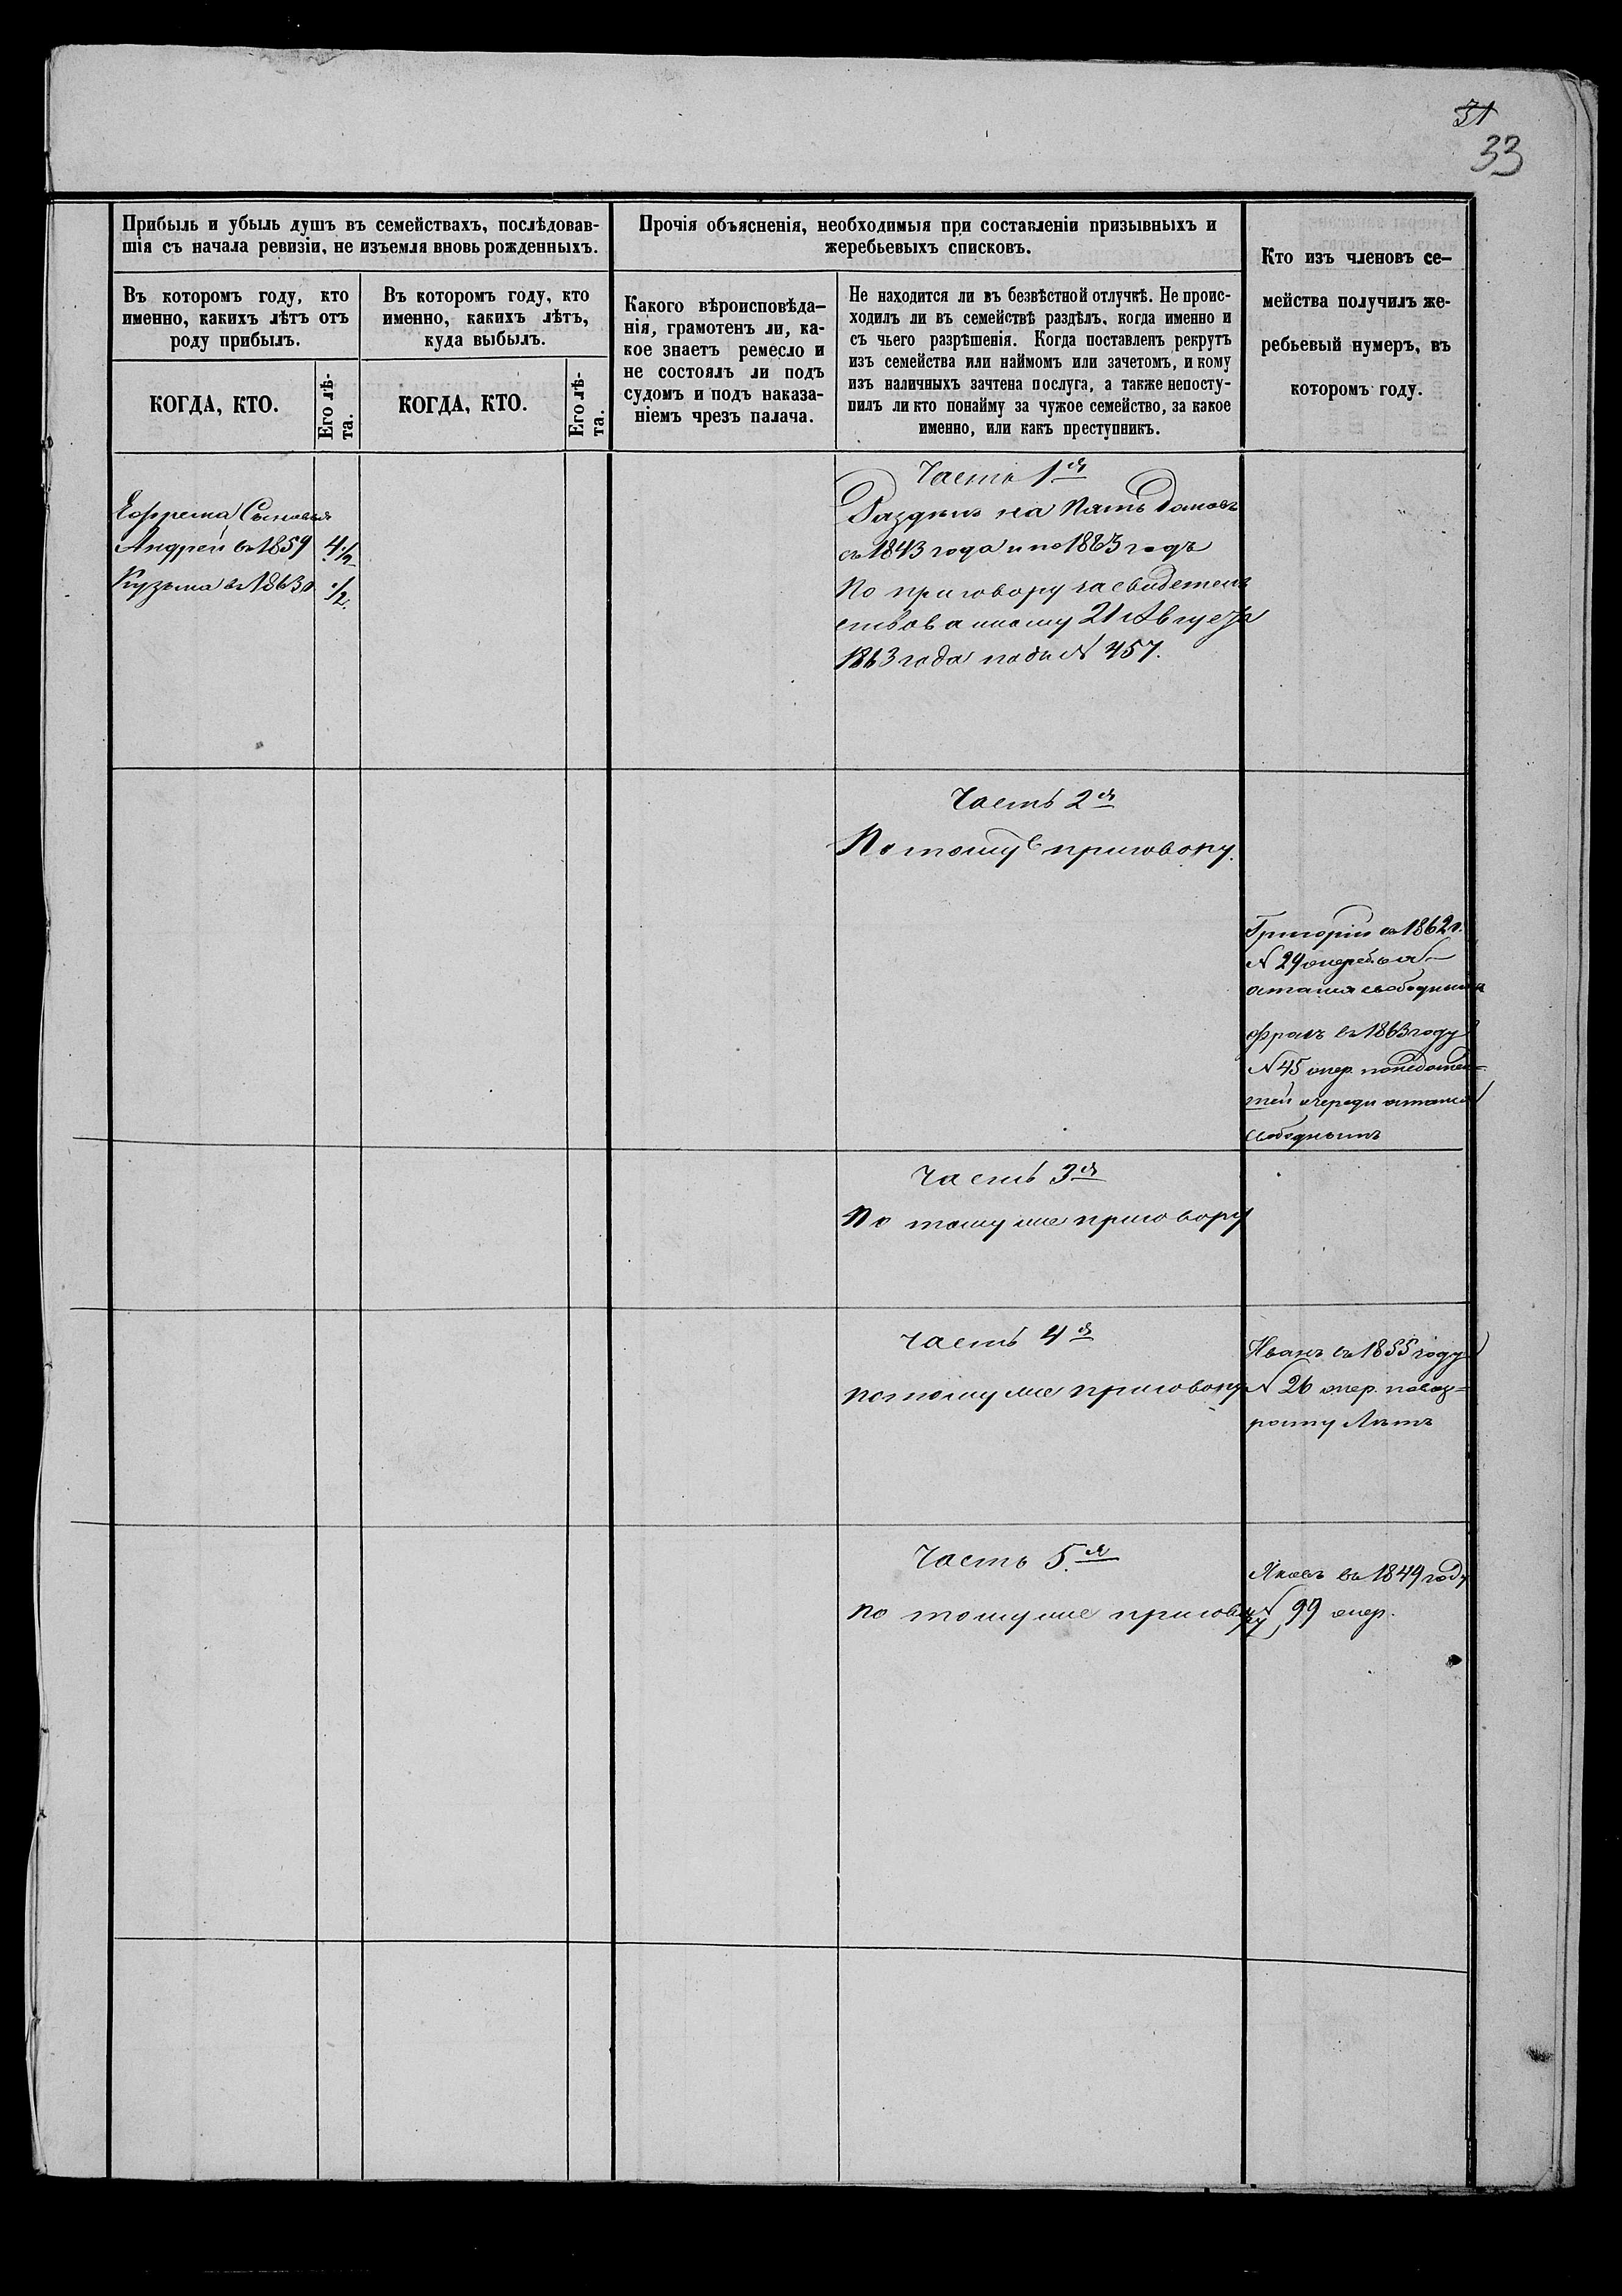 31
33
Прибыль и убыль душъ въ семействахъ, послѣдовав-
шія съ начала ревизіи, не изъемля вновь рожденныхъ.
Прочія объясненія, необходимыя при составленіи призывныхъ и
жеребьевыхъ списковъ.
Кто изъ членовъ се-
мейства получилъ же-
ребьевый нумеръ, въ
которомъ году.
Въ которомъ году, кто
именно, какихъ лѣтъ отъ
роду прибылъ.
Въ которомъ году, кто
именно, какихъ лѣтъ,
куда выбылъ.
Какого вѣроисповѣда-
нія, грамотенъ ли, ка-
кое знаетъ ремесло и
не состоялъ ли подъ
судомъ и подъ наказа-
ніемъ чрезъ палача.
Не находится ли въ безвѣстной отлучкѣ. Не проис-
ходилъ ли въ семействѣ раздѣлъ, когда именно и
съ чьего разрѣшенія. Когда поставленъ рекрутъ
изъ семейства или наймомъ или зачетомъ, и кому
изъ наличныхъ зачтена послуга, а также непосту-
пилъ ли кто понайму за чужое семейство, за какое
именно, или какъ преступникъ.
КОГДА, КТО.
Его лѣ-
та.
КОГДА, КТО.
Его лѣ-
та.
Ефрема Сыновья
Андрей въ 1859 4 1/2
Кузьма въ 1863 г 1/2
Часть 1я
Раздѣлъ на Пять домовъ
съ 1843 года и по 1863 годъ
По приговору засвидетель
ствованному 21 Августа
1863 года подъ № 457.
Часть 2я
По тому приговору.
Григорій въ 1862 г.
№ 29 жеребья
остался свободнымъ
въ 1863 году
№ 45 жер. понедошед=
шей очереди остался
свободнымъ
Часть 3я
По тому же приговору
Часть 4я
по тому же приговору
Иванъ въ 1855 году
№ 26 жер. повоз=
расту Лѣтъ
Часть 5я
по тому же приговору
Яковъ въ 1849 году
№ 99 жер.